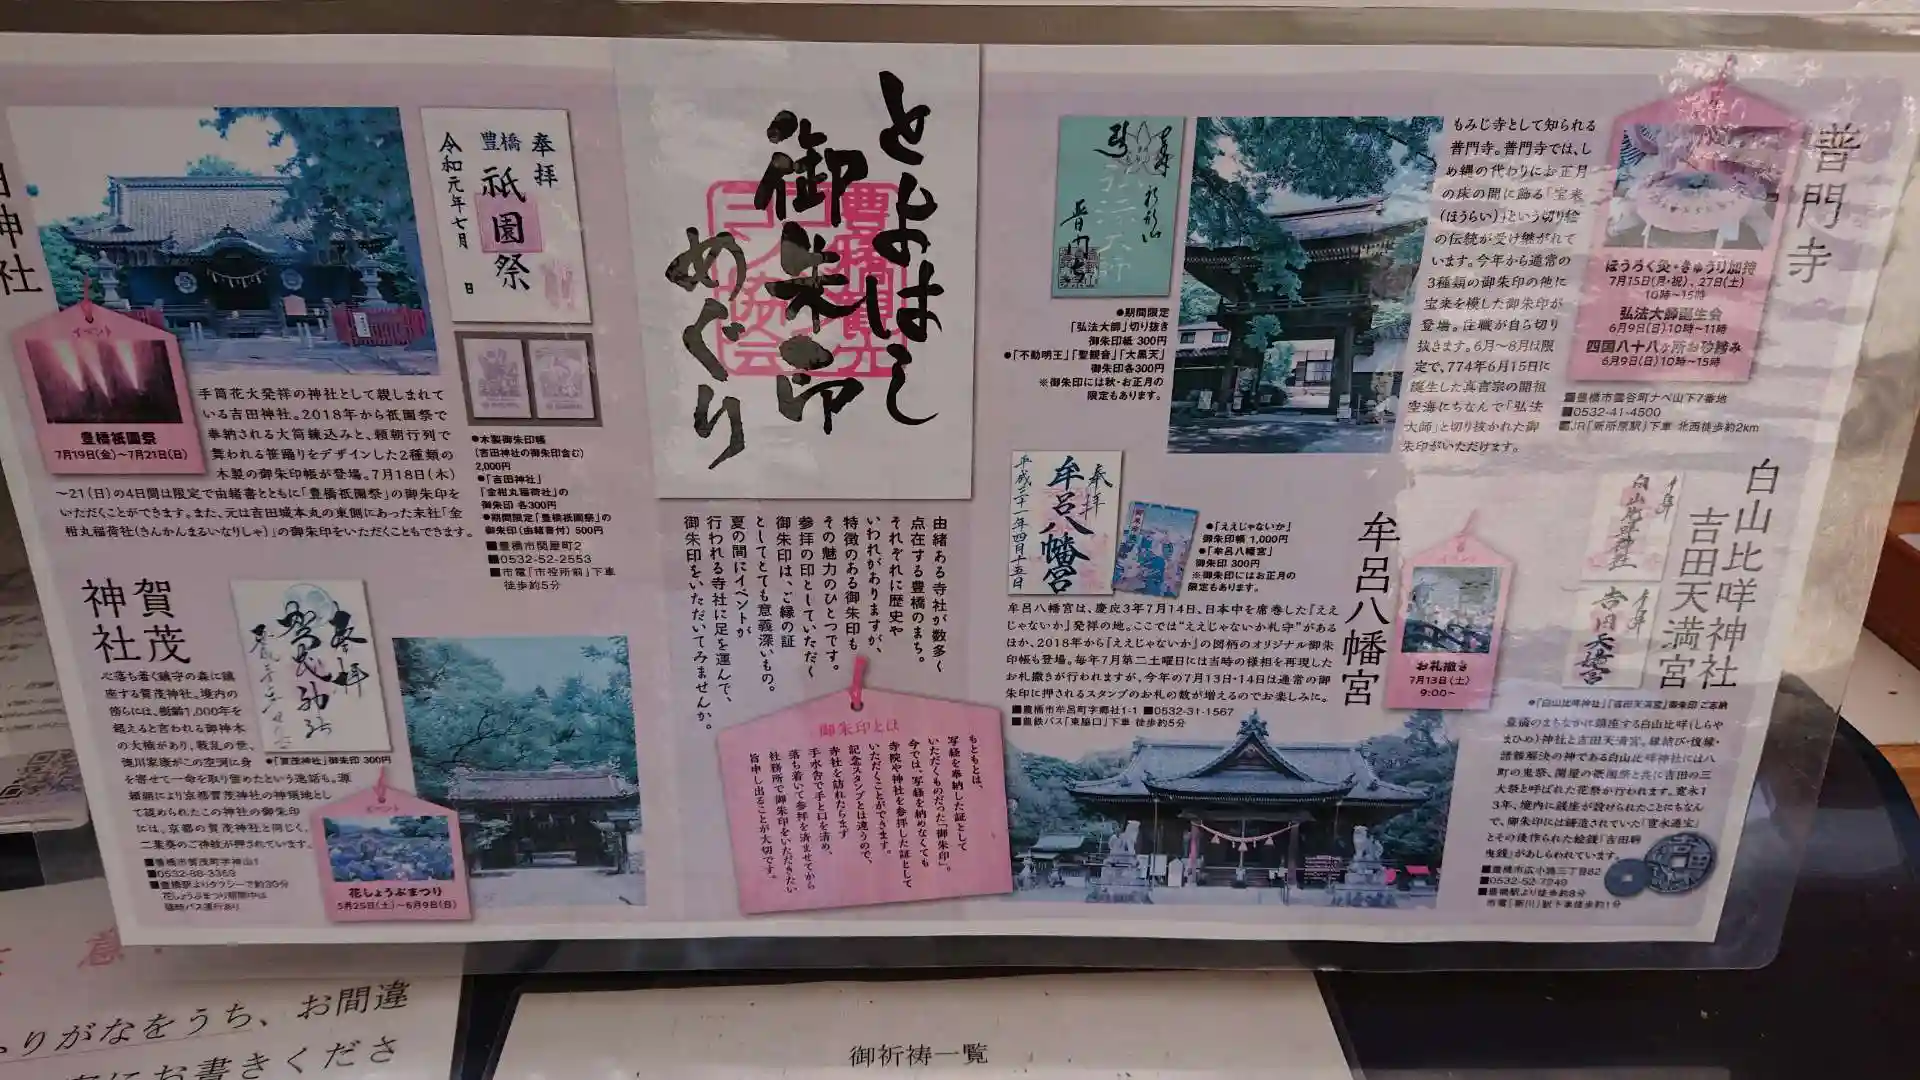 とよはし
御朱印
めぐり
豊橋観光
コンベンション協会
由緒ある寺社が数多く
点在する豊橋のまち。
それぞれに歴史や
いわれがありますが、
特徴のある御朱印も
その魅力のひとつです。
参拝の印としていただく
御朱印は、ご縁の証
としてとても意義深いもの。
夏の間にイベントが
行われる寺社に足を運んで、
御朱印を、いただいてみませんか。
御朱印とは
もともとは、
写経を奉納した証として
いただくものだった「御朱印」。
今では、写経を納めなくても
寺院や神社を参拝した証として
いただくことができます。
記念スタンプとは違うので、
寺社を訪れたらまず
手水舎で手と口を清め、
落ち着いて参拝を済ませてから
社務所で御朱印をいただきたい
旨申し出ることが大切です。
神社
奉拝
豊橋
祇園祭
令和元年七月
日
イベント
豊橋祇園祭
7月19日(金)~7月21日(日)
手筒花火発祥の神社として親しまれて
いる吉田神社。2018年から祇園祭で
奉納される大筒練込みと、頼朝行列で
舞われる笹踊りをデザインした2種類の
木製の御朱印帳が登場。7月18日(木)
~21(日)の4日間は限定で由緒書とともに「豊橋祇園祭」の御朱印を
いただくことができます。また、元は吉田城本丸の東側にあった末社「金
柑丸稲荷社(きんかんまるいなりしゃ)」の御朱印をいただくこともできます。
●木製御朱印帳
(吉田神社の御朱印含む)
2,000円
●「吉田神社」
「金柑丸稲荷社」の
御朱印 各300円
●期間限定「豊橋祇園祭」の
御朱印(由緒書付) 500円
■豊橋市関屋町2
■0532-52-2553
■市電「市役所前」下車
徒歩約5分
賀茂
神社
奉拝
賀茂神社
心落ち着く鎮守の森に鎮
座する賀茂神社。境内の
傍らには、樹齢1,000年を
超えると言われる御神木
の大楠があり、戦乱の世、
徳川家康がこの空洞に身
を寄せて一命を取り留めたという逸話も。源
頼朝により京都賀茂神社の神領地とし
て認められたこの神社の御朱印
には、京都の賀茂神社と同じく、
二葉葵のご神紋が押されています。
●「賀茂神社」御朱印 300円
■豊橋市賀茂町字神山1
■0532-88-3369
■豊橋駅よりタクシーで約30分
花しょうぶまつり期間中は
臨時バス運行あり
イベント
花しょうぶまつり
5月25日(土)~6月9日(日)
普門寺
もみじ寺として知られる
普門寺。普門寺では、し
め縄の代わりにお正月
の床の間に飾る「宝来
(ほうらい)」という切り絵
の伝統が受け継がれて
います。今年から通常の
3種類の御朱印の他に
宝来を模した御朱印が
登場。住職が自ら切り
抜きます。6月~8月は限
定で、774年6月15日に
誕生した真言宗の開祖
空海にちなんで「弘法
大師」と切り抜かれた御
朱印がいただけます。
●期間限定
「弘法大師」切り抜き
御朱印紙 300円
●「不動明王」「聖観音」「大黒天」
御朱印各300円
※御朱印には秋・お正月の
限定もあります。
ほうろく灸・きゅうり加持
7月15日(月・祝)、27日(土)
10時~15時
弘法大師誕生会
6月9日(日)10時~11時
四国八十八ヶ所お砂踏み
6月9日(日)10時~15時
■豊橋市雲谷町ナベ山下7番地
■0532-41-4500
■JR「新所原駅」下車 北西徒歩約2km
牟呂八幡宮
奉拝
牟呂八幡宮
平成三十一年四月十五日
●「ええじゃないか」
御朱印帳 1,000円
●「牟呂八幡宮」
御朱印 300円
※御朱印にはお正月の
限定もあります。
牟呂八幡宮は、慶応3年7月14日、日本中を席巻した『ええ
じゃないか』発祥の地。ここでは“ええじゃないか札守”がある
ほか、2018年から『ええじゃないか』の図柄のオリジナル御朱
印帳も登場。毎年7月第二土曜日には当時の様相を再現した
お札撒きが行われますが、今年の7月13日・14日は通常の御
朱印に押されるスタンプのお札の数が増えるのでお楽しみに。
■豊橋市牟呂町字郷社1-1 ■0532-31-1567
■豊鉄バス「東脇口」下車 徒歩約5分
イベント
お札撒き
7月13日(土)
9:00~
白山比咩神社
吉田天満宮
奉拝
白山比咩神社
奉拝
吉田天満宮
●「白山比咩神社」「吉田天満宮」御朱印 ご志納
豊橋のまちなかに鎮座する白山比咩(しらや
まひめ)神社と吉田天満宮。縁結び・復縁・
諸難解決の神である白山比咩神社には八
町の鬼祭、関屋の祇園祭と共に吉田の三
大祭と呼ばれた花祭が行われます。寛永1
3年、境内に銭座が設けられたことにちなん
で、御朱印には鋳造されていた「寛永通宝」
とその後作られた絵銭「吉田駒
曳銭」があしらわれています。
■豊橋市広小路三丁目82
■0532-52-7249
■豊橋駅より徒歩約8分
市電「新川」駅下車徒歩約1分
ふりがなをうち、お間違
お書きくださ
御祈祷一覧